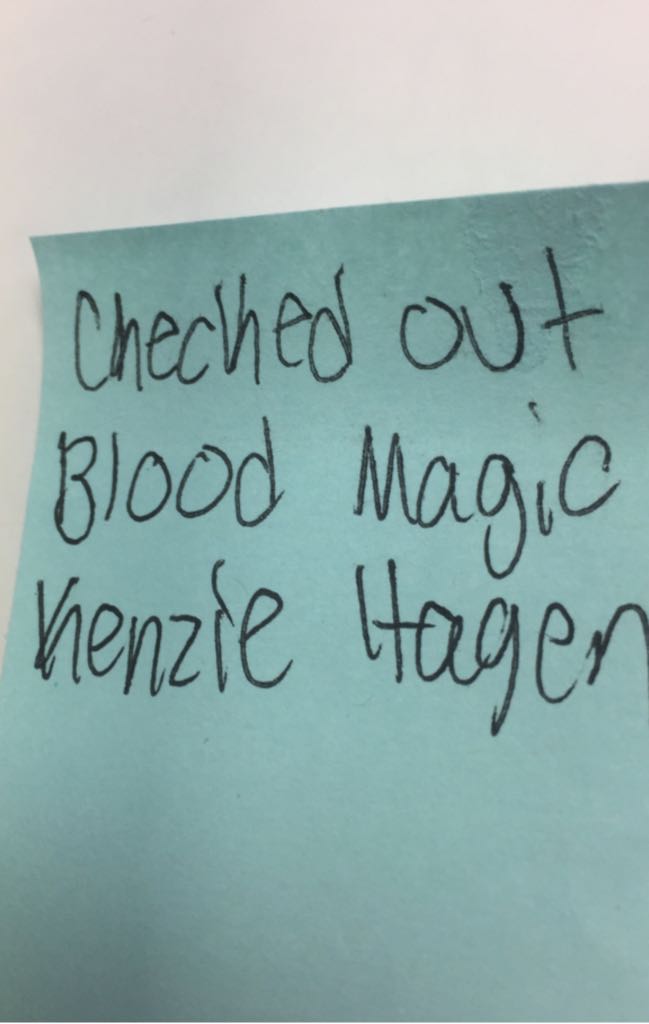 Checked out
Blood Magic
Kenzie Hagen